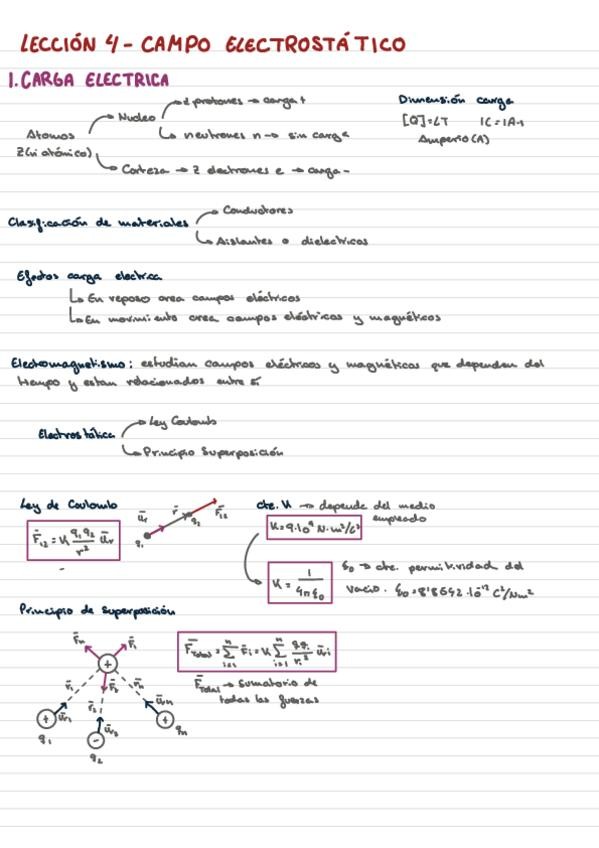 LECCIÓN 4 - CAMPO ELECTROSTÁTICO
1. CARGA ELECTRICA
Atomos
Z (nº atómico)
Nucleo
z protones → carga +
neutrones n → sin carga
Corteza → z electrones e → carga -
Dimensión carga
[Q] = LT 1C = 1A·s
Amperio (A)
Clasificación de materiales
Conductores
Aislantes o dielectricos
Efectos carga electrica
En reposo crea campos eléctricos
En movimiento crea campos eléctricos y magnéticos
Electromagnetismo: estudian campos eléctricos y magnéticos que dependen del
tiempo y estan relacionados entre sí
Electrostática
Ley Coulomb
Principio Superposición
Ley de Coulomb
F₁₂ = K q₁q₂/r² ūr
ūr r̄ F̄₁₂
q₁ q₂
cte. K → depende del medio
empleado
K = 9·10⁹ N·m²/C²
K = 1/4πε₀
ε₀ → cte. permitividad del
vacío. ε₀ = 8'8542·10⁻¹² C²/Nm²
Principio de superposición
F̄n F̄₁
+
r̄₁ F̄₂ r̄n
r̄₂
+ ūr₁ - ūr₂ + ūrn
q₁ q₂ qn
F̄Total = Σ F̄i = K Σ qqi/ri² ūri
F̄Total → Sumatorio de
todas las fuerzas